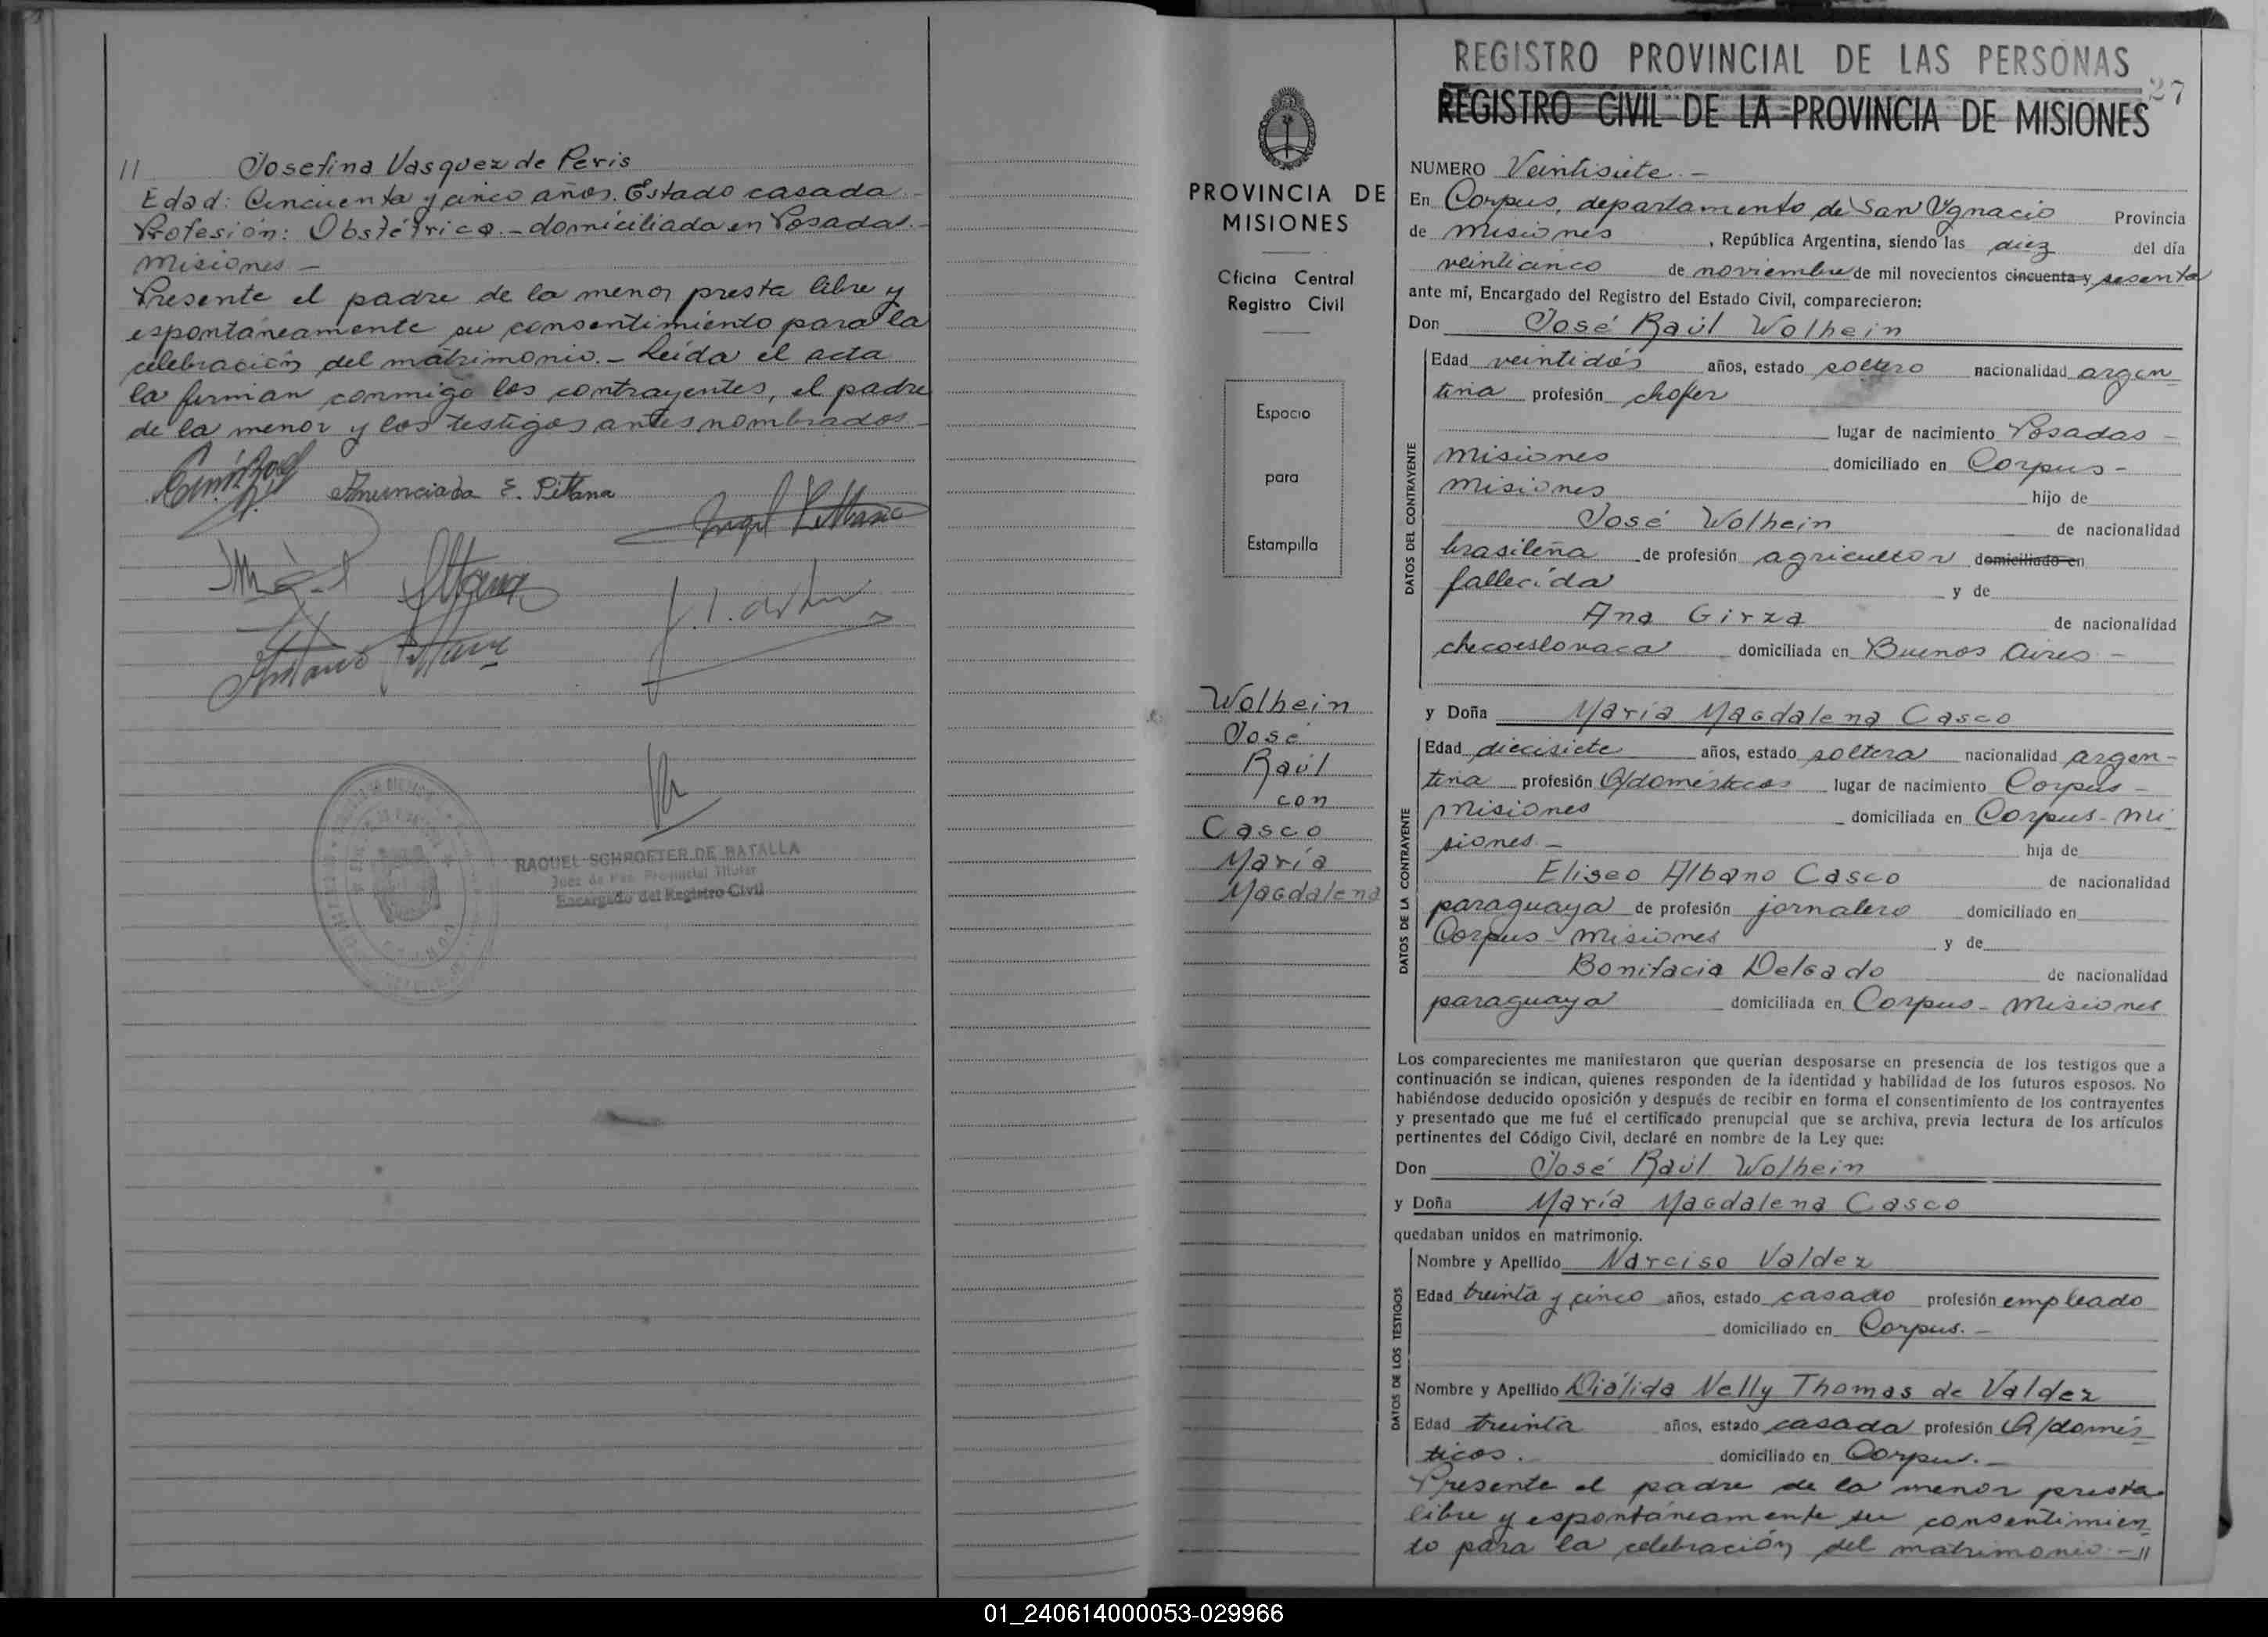 11 Josefina Vasquez de Peris
Edad: Cincuenta y cinco años. Estado casada
Profesión: Obstétrica. - domiciliada en Posadas. -
Misiones -
Presente el padre de la menor presta libre y
espontáneamente su consentimiento para la
celebración del matrimonio. - Leída el acta
la firman conmigo los contrayentes, el padre
de la menor y los testigos antes nombrados -
Anunciada E. Pittana
Angel Pittana
RAQUEL SCHROETER DE BATALLA
Juez de Paz Provincial Titular
Encargado del Registro Civil
PROVINCIA DE
MISIONES
Oficina Central
Registro Civil
Espacio
para
Estampilla
Wolhein
José
Raúl
con
Casco
María
Magdalena
REGISTRO PROVINCIAL DE LAS PERSONAS
27
REGISTRO CIVIL DE LA PROVINCIA DE MISIONES
NUMERO Veintisiete. -
En Corpus, departamento de San Ygnacio Provincia
de Misiones , República Argentina, siendo las diez del día
veinticinco de noviembre de mil novecientos cincuenta y sesenta
ante mí, Encargado del Registro del Estado Civil, comparecieron:
Don José Raúl Wolhein
DATOS DEL CONTRAYENTE
Edad veintidós años, estado soltero nacionalidad argen
tina profesión chofer
lugar de nacimiento Posadas -
Misiones domiciliado en Corpus -
Misiones hijo de
José Wolhein de nacionalidad
brasileña de profesión agricultor domiciliado en
fallecida y de
Ana Girza de nacionalidad
checoeslovaca domiciliada en Buenos Aires -
y Doña María Magdalena Casco
DATOS DE LA CONTRAYENTE
Edad diecisiete años, estado soltera nacionalidad argen-
tina profesión Q/domésticos lugar de nacimiento Corpus -
Misiones domiciliada en Corpus - Mi
siones. - hija de
Eliseo Albano Casco de nacionalidad
paraguaya de profesión jornalero domiciliado en
Corpus - Misiones y de
Bonifacia Delgado de nacionalidad
paraguaya domiciliada en Corpus - Misiones
Los comparecientes me manifestaron que querían desposarse en presencia de los testigos que a
continuación se indican, quienes responden de la identidad y habilidad de los futuros esposos. No
habiéndose deducido oposición y después de recibir en forma el consentimiento de los contrayentes
y presentado que me fué el certificado prenupcial que se archiva, previa lectura de los artículos
pertinentes del Código Civil, declaré en nombre de la Ley que:
Don José Raúl Wolhein
y Doña María Magdalena Casco
quedaban unidos en matrimonio.
DATOS DE LOS TESTIGOS
Nombre y Apellido Narciso Valdez
Edad treinta y cinco años, estado casado profesión empleado
domiciliado en Corpus. -
Nombre y Apellido Diálida Nelly Thomas de Valdez
Edad treinta años, estado casada profesión Q/domés
ticos. domiciliado en Corpus. -
Presente el padre de la menor presta
libre y espontáneamente su consentimien
to para la celebración del matrimonio - 11
01_240614000053-029966